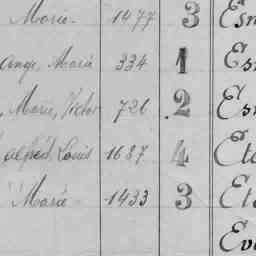 Marie. 1477 3 Esm
ange, Maria 334 1 Es
Marie, Victor 726 2 Es
alfred, Louis 1687 4 Et
Marie 1433 3 Et
Ev